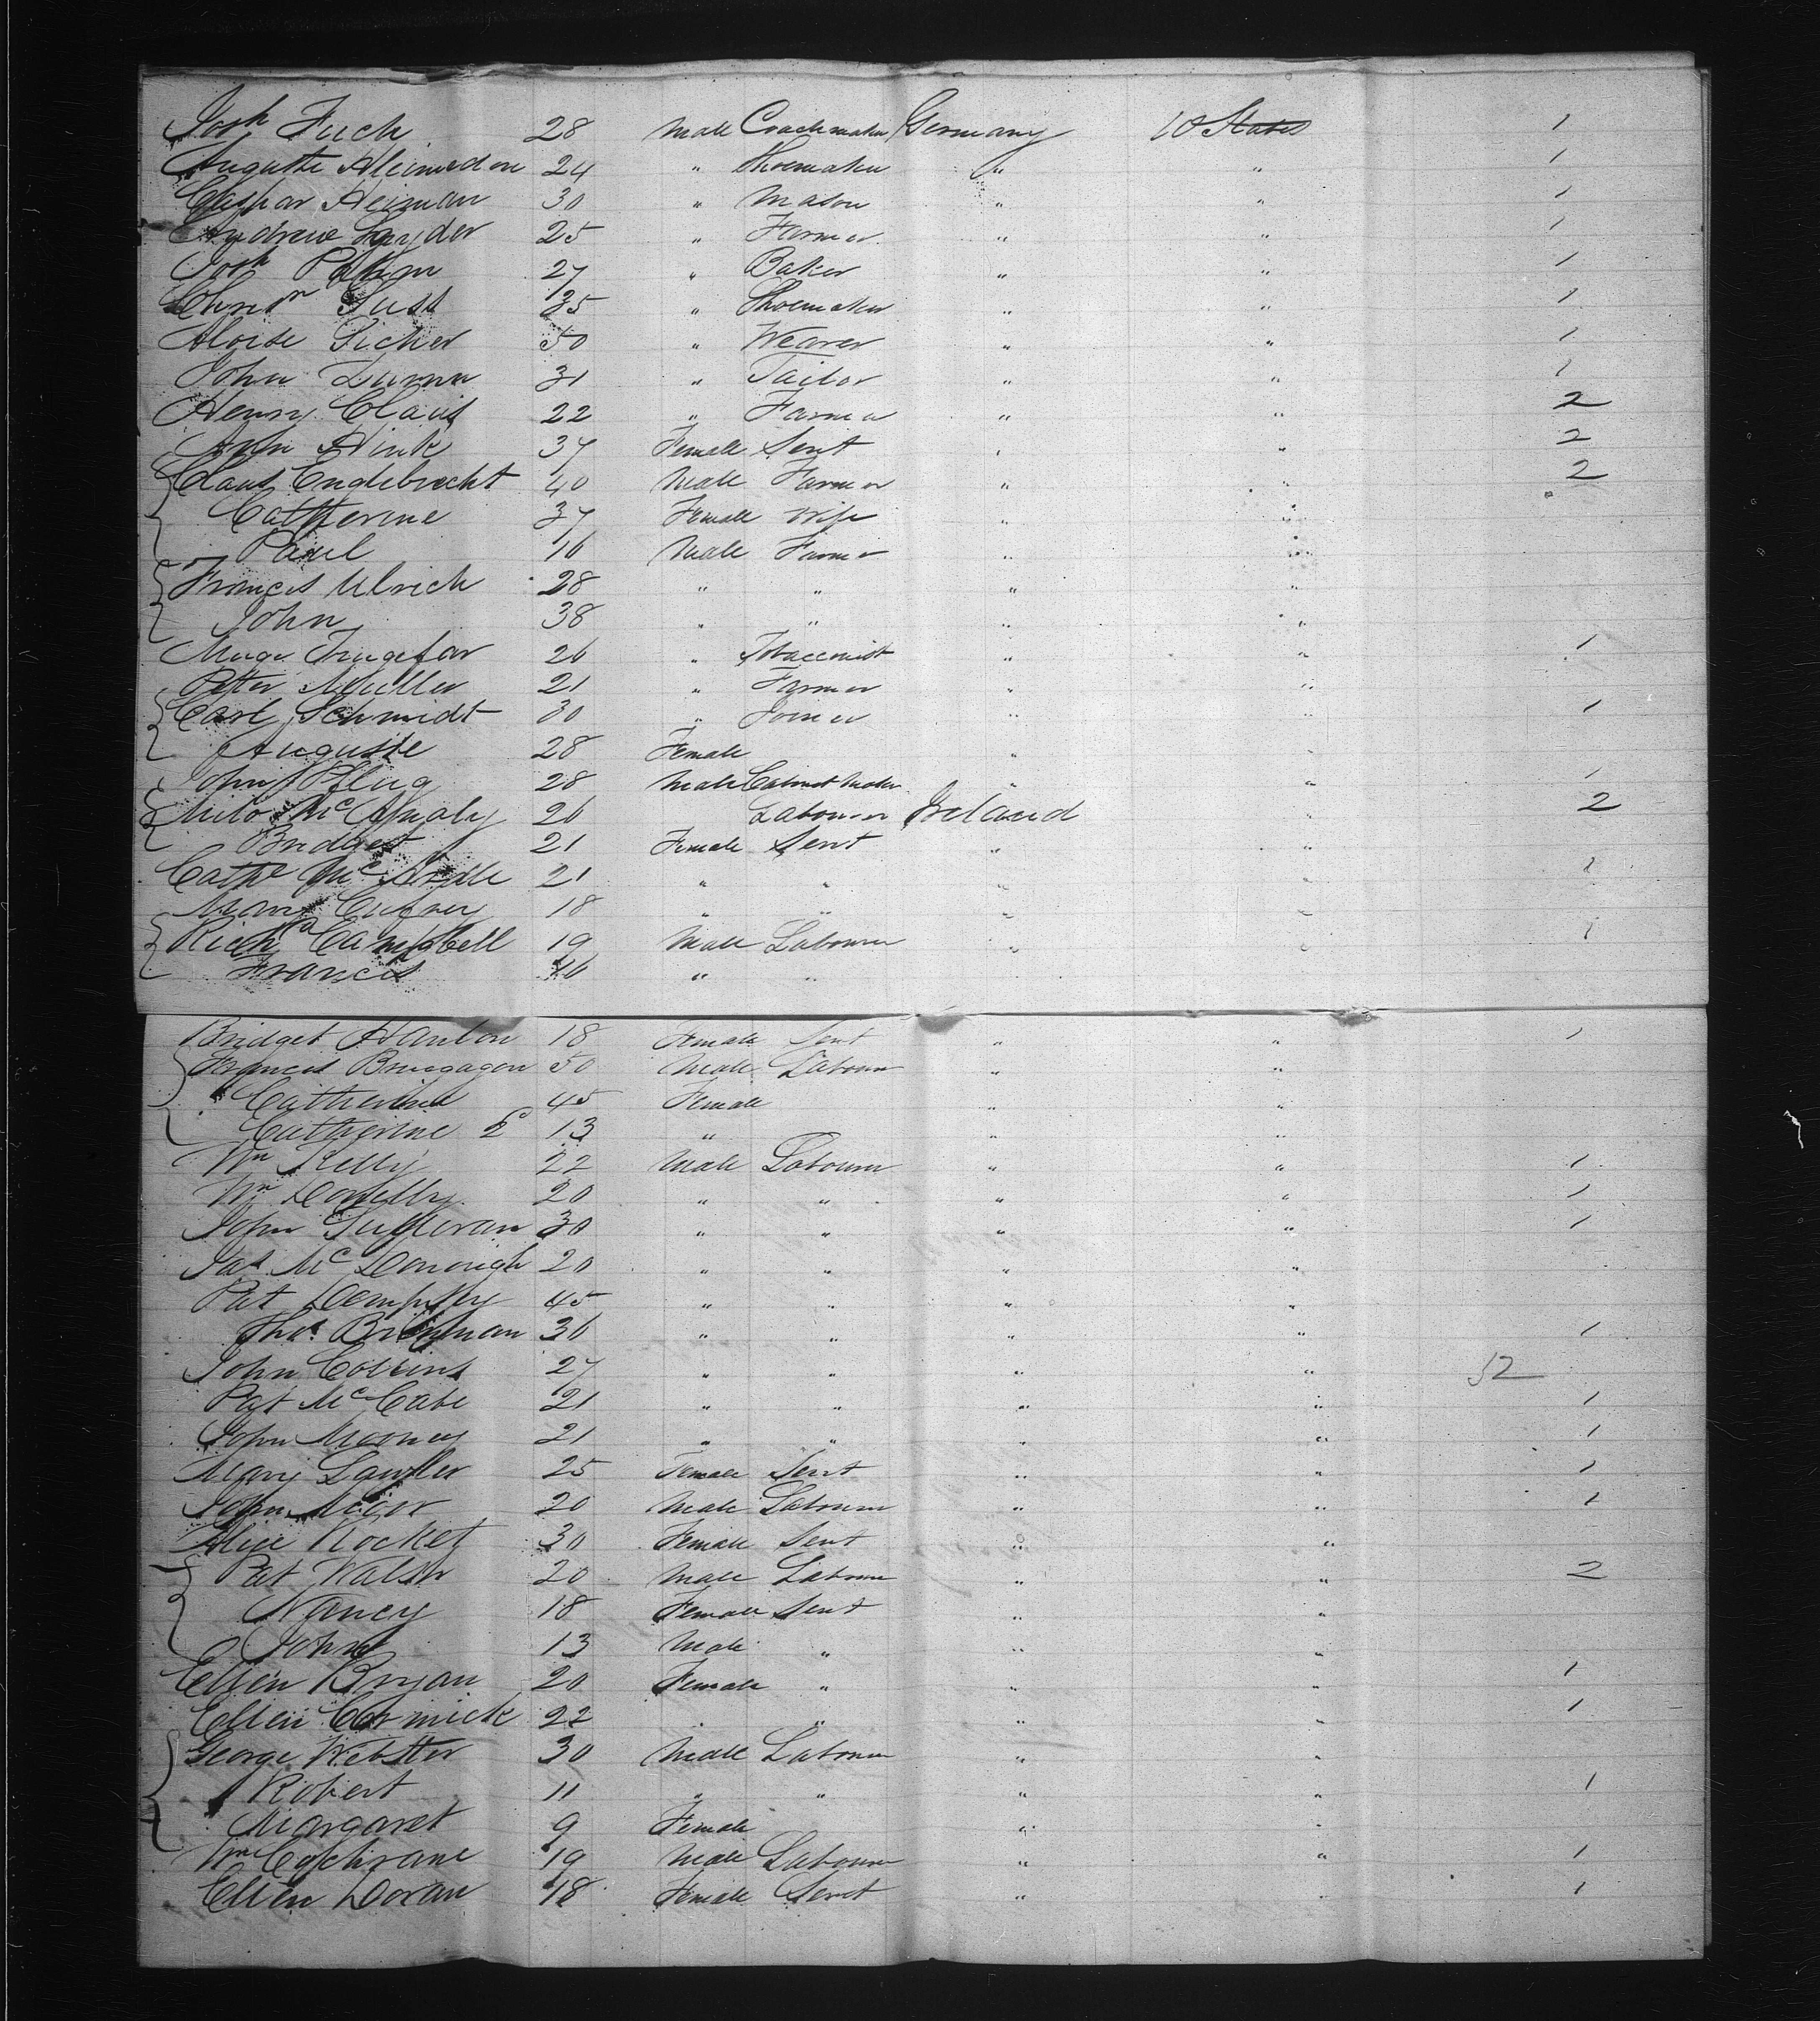 Josh Fuch 28 Male Coachmaker Germany U States 1
Auguste 24 " Shoemaker " " 1
Caspar Heiman 30 " Mason " " 1
Andrew Snyder 25 " Farmer " " 1
Josh Palm 27 " Baker " " 1
Chrisr Suss 35 " Shoemaker " " 1
Aloise Sicher 50 " Weaver " " 1
John 31 " Tailor " " 1
Henry Claus 22 " Farmer " " 2
Ann Hink 37 Female Sert " " 2
Claus Englebrecht 40 Male Farmer " " 2
Catherine 37 Female Wife " "
Paul 16 Male Farmer " "
Francis Ulrich 28 " " " "
John 38 " " " "
26 " Tobacconist " " 1
Peter Muller 21 " Farmer " "
Carl Schmidt 30 " Joiner " " 1
Auguste 28 Female " "
John Pflug 28 Male Cabinet Maker " " 1
Milo 26 Labourer Ireland " 2
Bridget 21 Female Sert " "
Cathe Mc Ardle 21 " " " " 1
Mary 18 " " " "
Richd Campbell 19 Male Labourer " " 1
Francis 16 " " " "
Bridget Hanlon 18 Female Sert " " 1
Francis 50 Male Labourer " "
Catherine 45 Female " "
Catherine 2d 13 " " "
Wm Kelly 22 Male Labourer " " 1
Wm Donelly 20 " " " " 1
John Sullivan 30 " " " " 1
Jas Mc Donough 20 " " " "
Pat Dempsey 45 " " " "
Thos Brennan 36 " " " " 1
John Collins 27 " " " " 52
Pat McCabe 21 " " " " 1
John Mooney 21 " " " " 1
Mary Lawler 25 Female Sert " " 1
John 20 Male Labourer " " 1
Alice Rocket 30 Female Sert " "
Pat Walsh 20 Male Labourer " " 2
Nancy 18 Female Sert " "
John 13 Male " " "
Ellen Bryan 20 Female " " " 1
Ellen Cormick 22 " " " " 1
George Webster 30 Male Labourer " "
Robert 11 " " " " 1
Margaret 9 Female " "
Wm Cochrane 19 Male Labourer " " 1
Ellen Doran 18 Female Servt " " 1